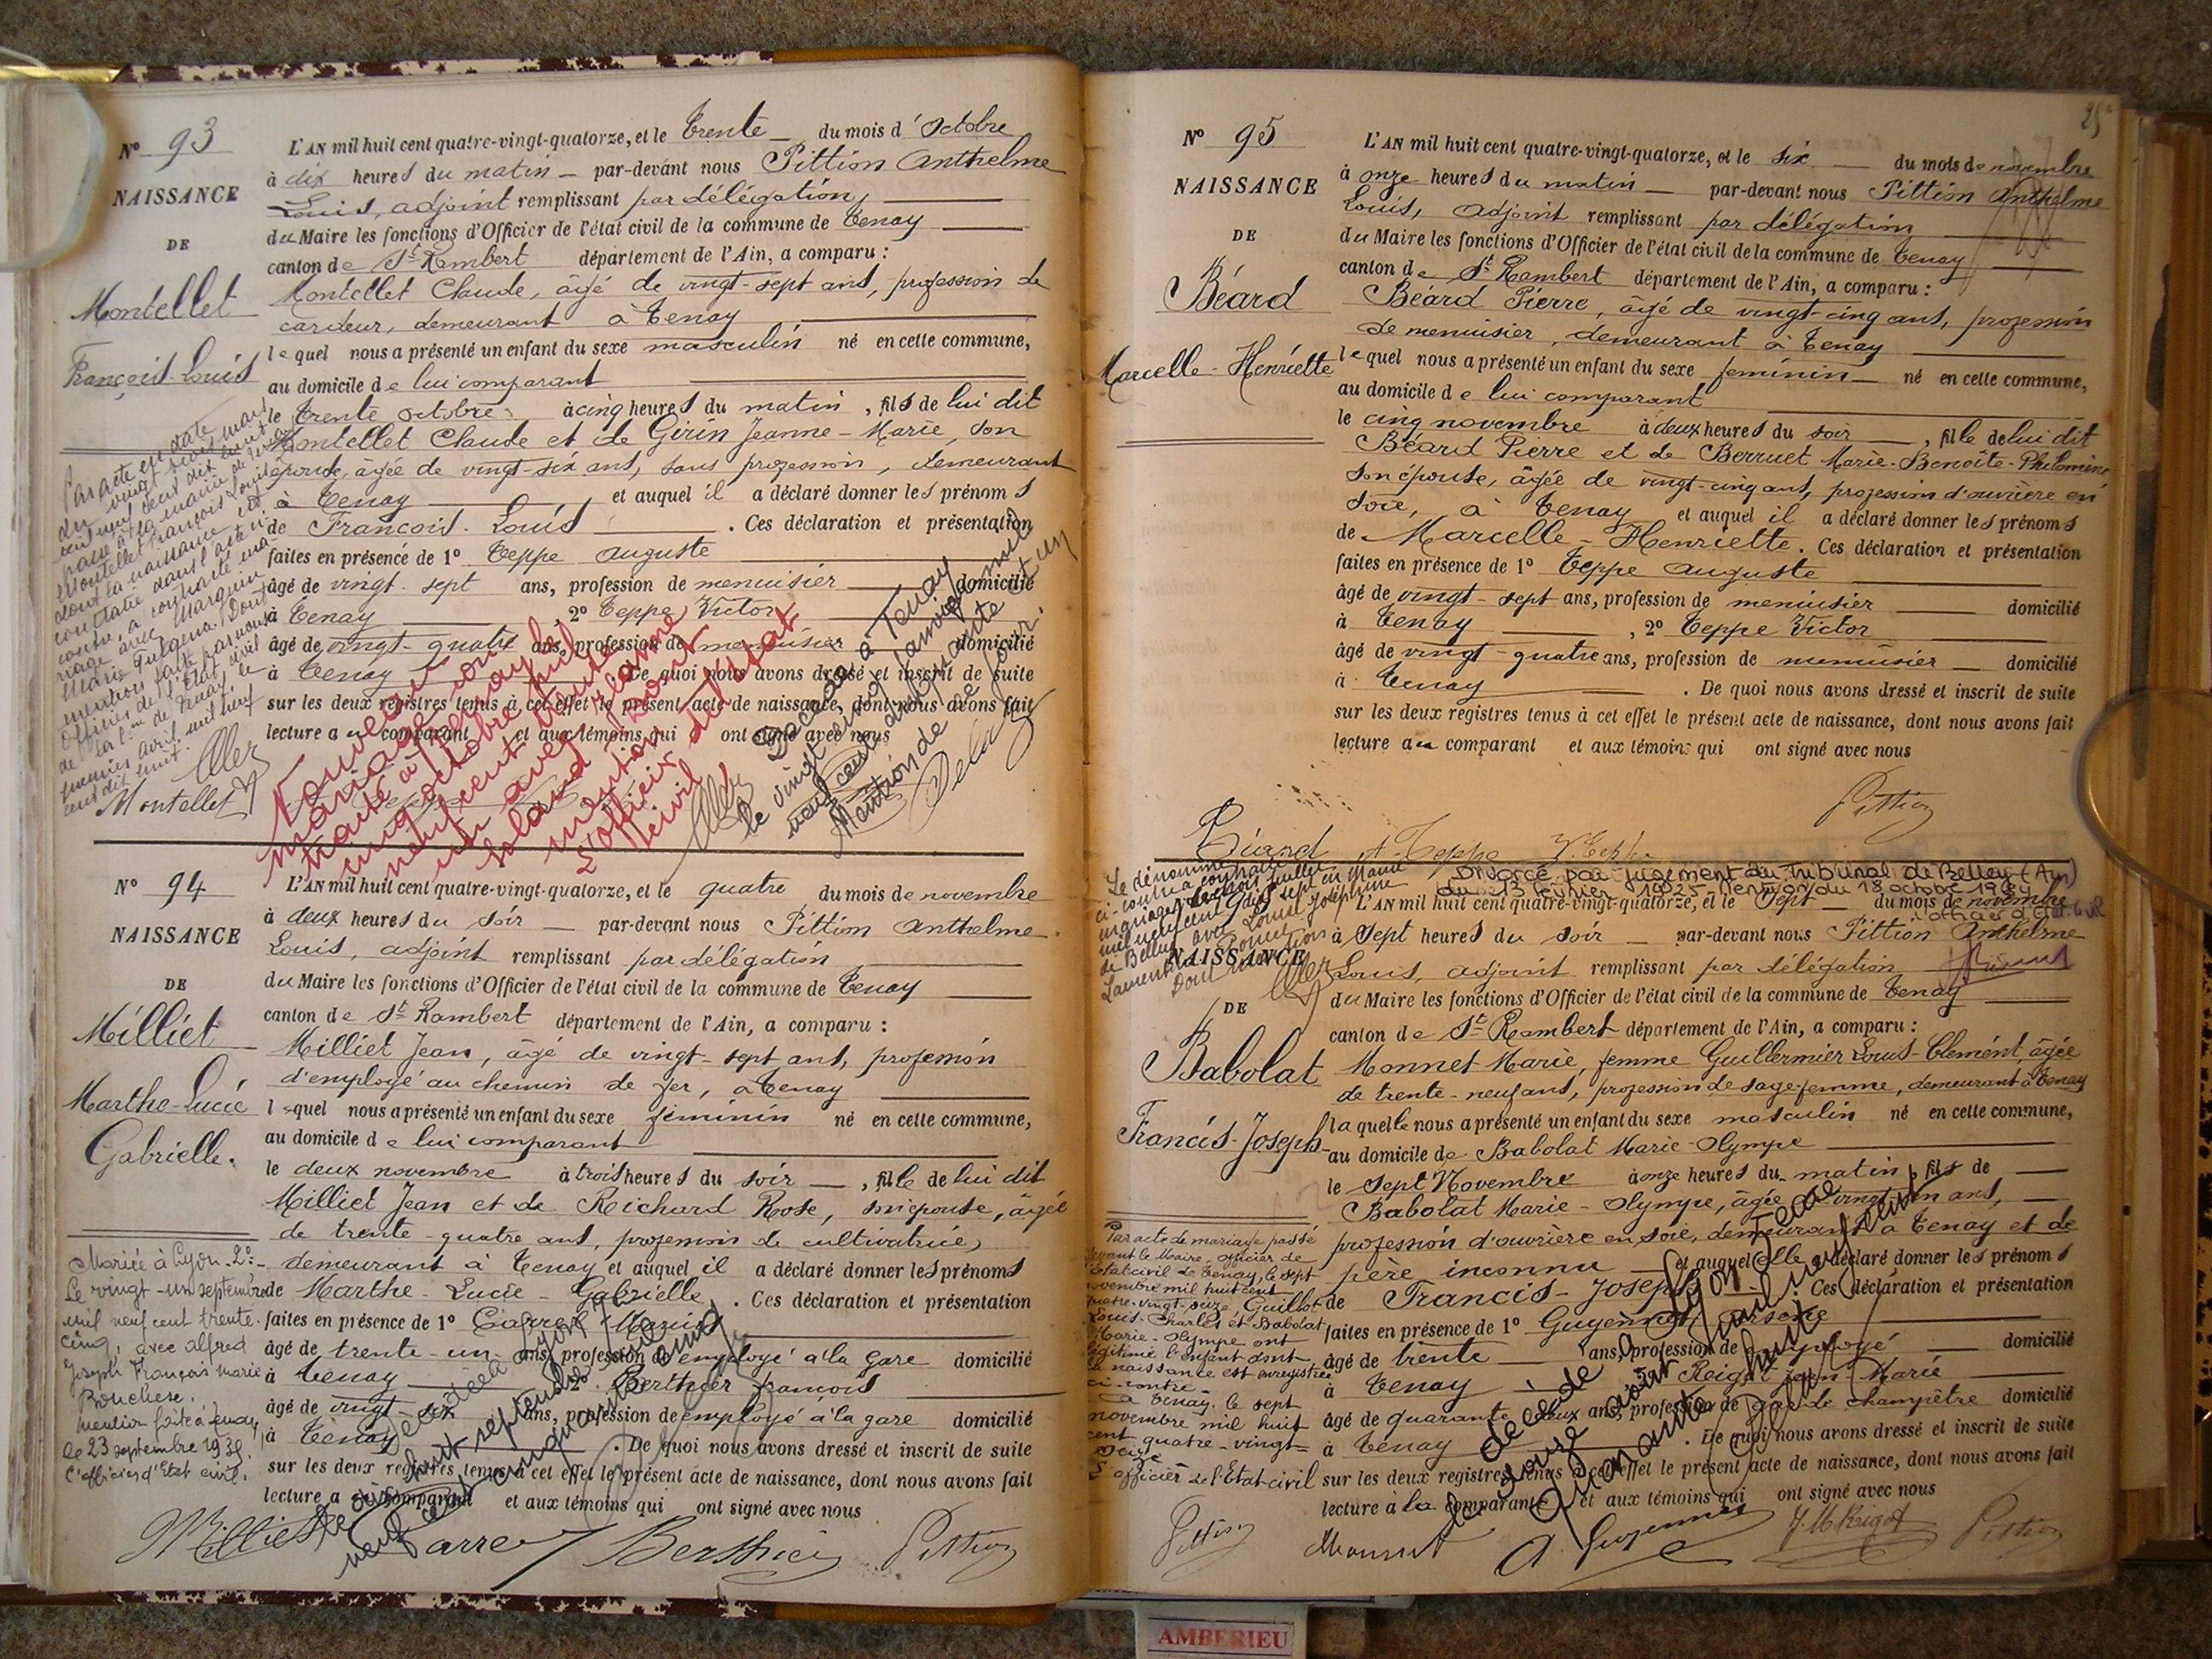 Nº 93
NAISSANCE
DE
Montellet
François-Louis
L'AN mil huit cent quatre-vingt-quatorze, et le trente du mois d'octobre
à dix heures du matin par-devant nous Pittion Anthelme
Louis, adjoint remplissant par délégation,
du Maire les fonctions d'Officier de l'état civil de la commune de Tenay
canton de St Rambert département de l'Ain, a comparu :
Montellet Claude, âgé de vingt-sept ans, profession de
cardeur, demeurant à Tenay
lequel nous a présenté un enfant du sexe masculin né en cette commune,
au domicile de lui comparant
le trente octobre à cinq heures du matin, fils de lui dit
Montellet Claude et de Girin Jeanne-Marie, son
épouse, âgée de vingt-six ans, sans profession, demeurant
à Tenay et auquel il a déclaré donner les prénoms
de François-Louis. Ces déclaration et présentation
faites en présence de 1º Teppe Auguste
âgé de vingt-sept ans, profession de menuisier domicilié
à Tenay, 2º Teppe Victor
âgé de vingt-quatre ans, profession de menuisier domicilié
à Tenay. De quoi nous avons dressé et inscrit de suite
sur les deux registres tenus à cet effet le présent acte de naissance, dont nous avons fait
lecture au comparant et aux témoins qui ont signé avec nous
Par acte en date
du vingt trois mars
mil neuf cent dix huit
passé à la mairie de Tenay
Montellet François Louis
dont la naissance est
constatée dans l'acte ci-
contre, a contracté ma-
riage avec Marguin
Marie
mention faite par nous
Officier de l'état civil
de la Cne de Tenay le
premier avril mil neuf
cent dix huit.
Montellet
Nouveau
mariage con-
tracté à
cinq octobre mil
neuf cent trente
un avec
mention
L'officier d'état
civil
Décédé à Tenay
le vingt cinq janvier mil
neuf cent cinquante et un
Mention de ce jour
Nº 94
NAISSANCE
DE
Milliet
Marthe-Lucie
Gabrielle.
L'AN mil huit cent quatre-vingt-quatorze, et le quatre du mois de novembre
à deux heures du soir par-devant nous Pittion Anthelme
Louis, adjoint remplissant par délégation
du Maire les fonctions d'Officier de l'état civil de la commune de Tenay
canton de St Rambert département de l'Ain, a comparu :
Milliet Jean, âgé de vingt-sept ans, profession
d'employé au chemin de fer, à Tenay
lequel nous a présenté un enfant du sexe féminin né en cette commune,
au domicile de lui comparant
le deux novembre à trois heures du soir, fille de lui dit
Milliet Jean et de Reichard Rose, son épouse, âgée
de trente-quatre ans, profession de cultivatrice,
demeurant à Tenay et auquel il a déclaré donner les prénoms
de Marthe-Lucie-Gabrielle. Ces déclaration et présentation
faites en présence de 1º
âgé de trente-un ans, profession de employé à la gare domicilié
à Tenay 2º Berthier François
âgé de vingt-six ans, profession de employé à la gare domicilié
à Tenay. De quoi nous avons dressé et inscrit de suite
sur les deux registres tenus à cet effet le présent acte de naissance, dont nous avons fait
lecture au comparant et aux témoins qui ont signé avec nous
Mariée à Lyon-2º-
Le vingt-un septembre
mil neuf cent trente-
cinq, avec Alfred
Joseph François Marie
mention faite à Tenay
le 23 septembre 1935
l'officier d'Etat civil.
Décédée à Lyon
le huit septembre mil
neuf cent cinquante cinq
Milliet Berthier Pittion
25
Nº 95
NAISSANCE
DE
Béard
Marcelle-Henriette
L'AN mil huit cent quatre-vingt-quatorze, et le six du mois de novembre
à onze heures du matin par-devant nous Pittion Anthelme
Louis, adjoint remplissant par délégation
du Maire les fonctions d'Officier de l'état civil de la commune de Tenay
canton de St Rambert département de l'Ain, a comparu :
Béard Pierre, âgé de vingt-cinq ans, profession
de menuisier, demeurant à Tenay
lequel nous a présenté un enfant du sexe féminin né en cette commune,
au domicile de lui comparant
le cinq novembre à deux heures du soir, fille de lui dit
Béard Pierre et de Berruet Marie-Benoîte-Philomène
son épouse, âgée de vingt-cinq ans, profession d'ouvrière en
soie, à Tenay et auquel il a déclaré donner les prénoms
de Marcelle-Henriette. Ces déclaration et présentation
faites en présence de 1º Teppe Auguste
âgé de vingt-sept ans, profession de menuisier domicilié
à Tenay, 2º Teppe Victor
âgé de vingt-quatre ans, profession de menuisier domicilié
à Tenay. De quoi nous avons dressé et inscrit de suite
sur les deux registres tenus à cet effet le présent acte de naissance, dont nous avons fait
lecture au comparant et aux témoins qui ont signé avec nous
Pittion
Béard A. Teppe V. Teppe
Divorcé par jugement du Tribunal de Belley (Ain)
du 13 février 1925. Mention du 18 octobre
Le dénommé
ci-contre a contracté
mariage
mil neuf cent dix sept en Mairie
de Belley avec Joséphine
La mention
NAISSANCE
DE
Babolat
Francis-Joseph
L'AN mil huit cent quatre-vingt-quatorze, et le sept du mois de novembre
à sept heures du soir par-devant nous Pittion Anthelme
Louis, adjoint remplissant par délégation
du Maire les fonctions d'Officier de l'état civil de la commune de Tenay
canton de St Rambert département de l'Ain, a comparu :
Monnet Marie, femme Guillermier Louis-Clément, âgée
de trente-neuf ans, profession de sage-femme, demeurant à Tenay
laquelle nous a présenté un enfant du sexe masculin né en cette commune,
au domicile de Babolat Marie-Olympe
le sept Novembre à onze heures du matin, fils de
Babolat Marie-Olympe, âgée de vingt-un ans,
profession d'ouvrière en soie, demeurant à Tenay et de
père inconnu et auquel elle a déclaré donner les prénoms
de Francis-Joseph. Ces déclaration et présentation
faites en présence de 1º Guyennet Arsène
âgé de trente ans, profession de employé domicilié
à Tenay 2º Reigot Jean Marie
âgé de quarante-deux ans, profession de garde champêtre domicilié
à Tenay. De quoi nous avons dressé et inscrit de suite
sur les deux registres tenus à cet effet le présent acte de naissance, dont nous avons fait
lecture à la comparante et aux témoins qui ont signé avec nous
Par acte de mariage passé
devant le Maire, officier de
l'état civil de Tenay, le sept
novembre mil huit cent
quatre-vingt-seize, Guillot
Louis-Charles et Babolat
Marie-Olympe ont
légitimé l'enfant dont
la naissance est enregistrée
ci-contre.
à Tenay, le sept
novembre mil huit
cent quatre-vingt-
seize
L'officier de l'Etat-civil
Décédé à Lyon
le douze août mil neuf cent
quarante huit
Pittion Monnet A. Guyennet J. M. Reigot Pittion
AMBERIEU